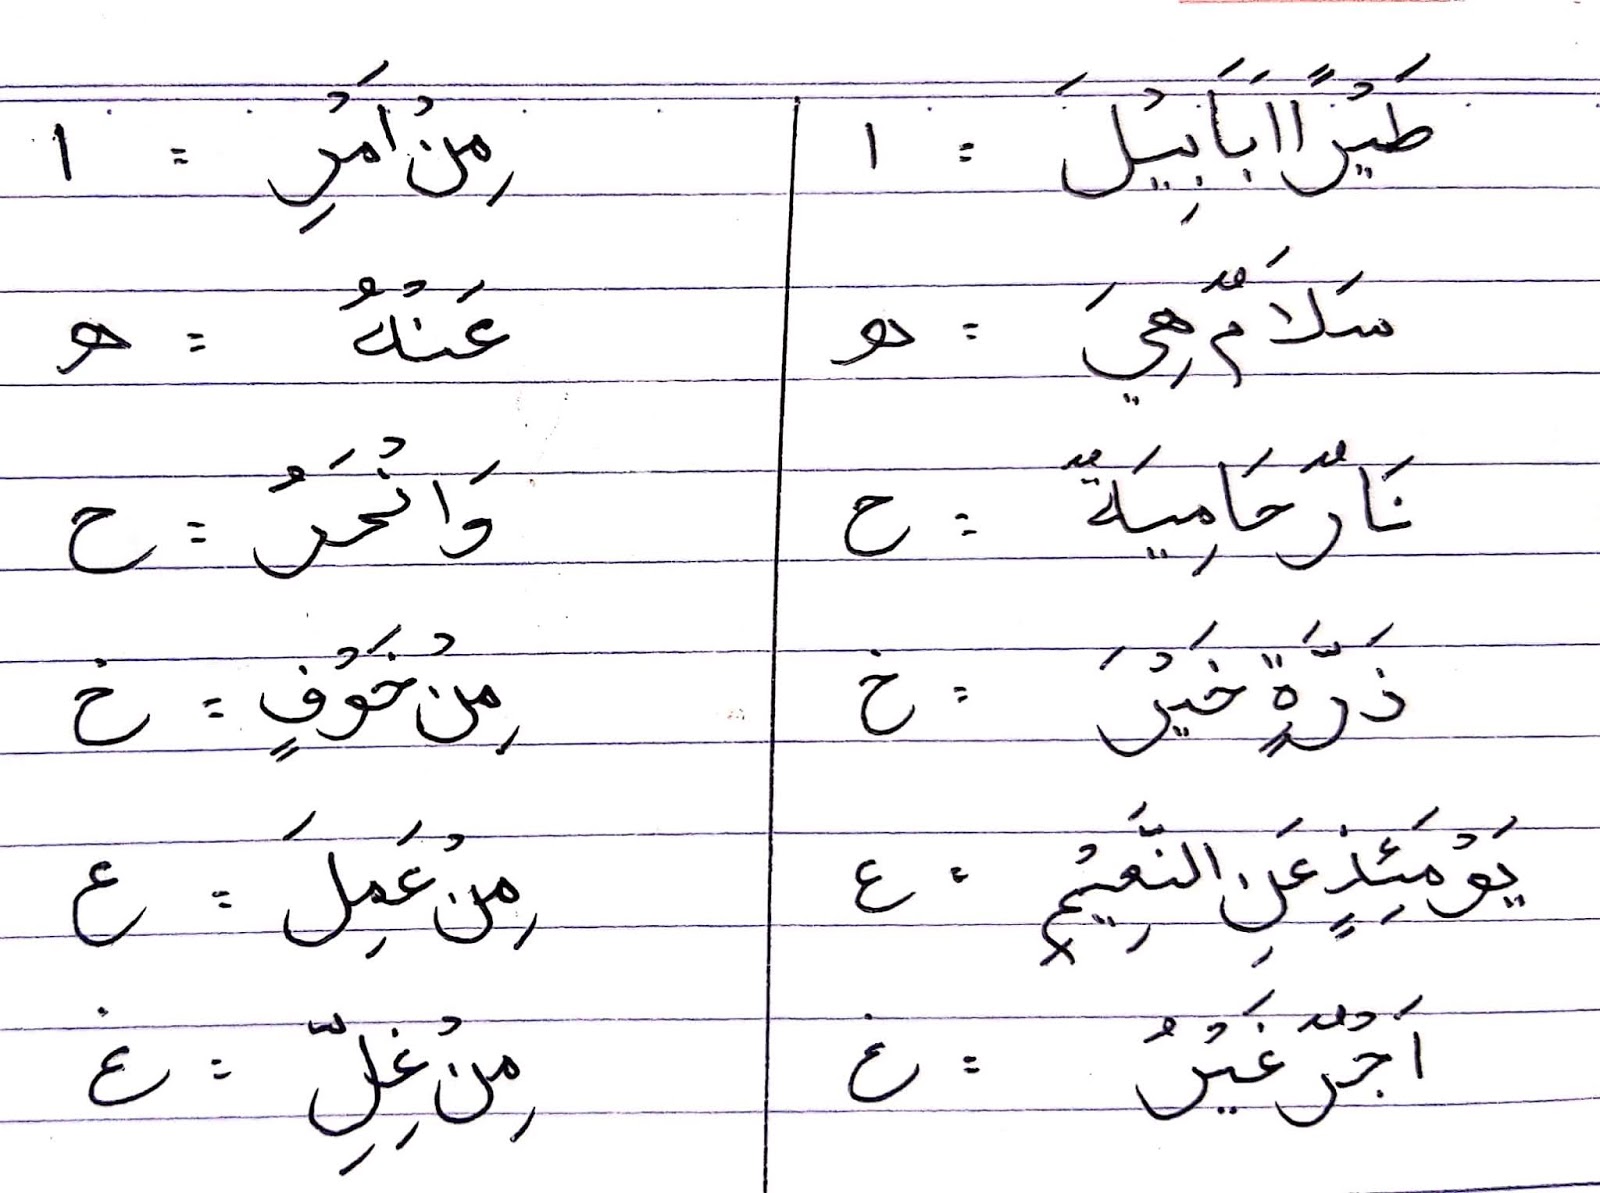 طَيْرًا اَبَابِيْلَ = ا مِنْ اَمْرِ = ا
سَلَامٌ هِيَ = هـ عَنْهُ = هـ
نَارٌ حَامِيَةٌ = ح وَانْحَرْ = ح
ذَرَّةٍ خَيْرَ = خ مِنْ خَوْفٍ = خ
يَوْمَئِذٍ عَنِ النَّعِيْمِ = ع مِنْ عَمِلَ = ع
اَجْرٌ غَيْرُ = غ مِنْ غِلِّ = غ